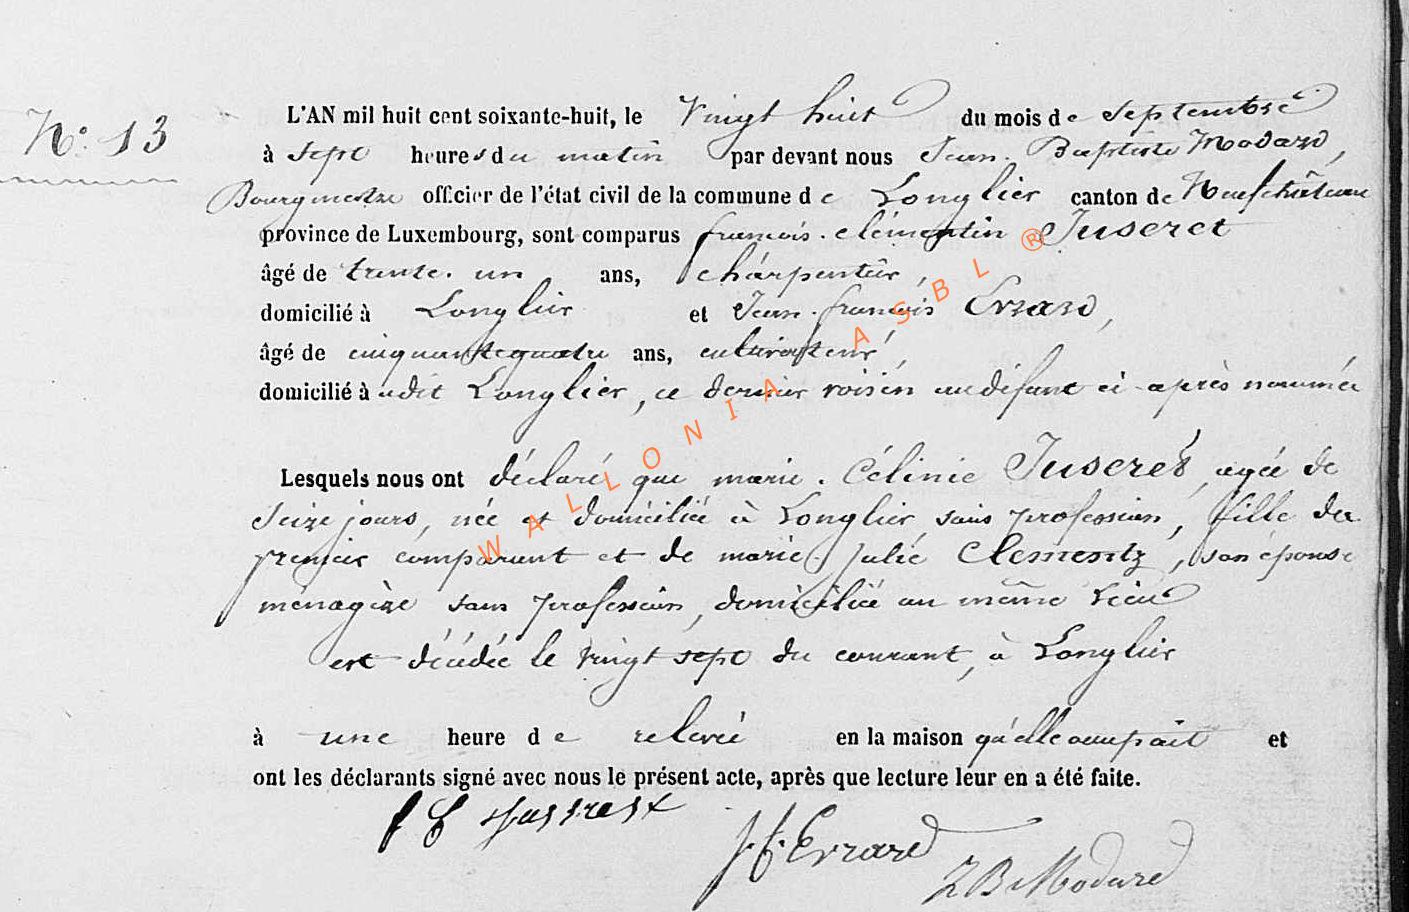 N° 13
L'AN mil huit cent soixante-huit, le Vingt huit du mois de Septembre
à Sept heures du matin par devant nous Jean-Baptiste Modard,
Bourgmestre officier de l'état civil de la commune de Longlier canton de Neufchâteau
province de Luxembourg, sont comparus francois-clémentin Juseret
âgé de trente-un ans, charpentier,
domicilié à Longlier et Jean-francois Errard,
âgé de cinquante quatre ans, cultivateur,
domicilié à udit Longlier, ce dernier voisin au défunt ci-après nommée
Lesquels nous ont déclaré que marie-Célinie Juseret, agée de
Seize jours, née et domiciliée à Longlier sans profession, fille du
premier comparant et de marie-Julie Clementz, son épouse
ménagère sans profession, domiciliée au même lieu
est décédée le vingt sept du courant, à Longlier
à une heure de relevée en la maison qu'elle occupait et
ont les déclarants signé avec nous le présent acte, après que lecture leur en a été faite.
f C Jusseret
J. f. Errard
J B Modard
WALLONIA ASBL ®